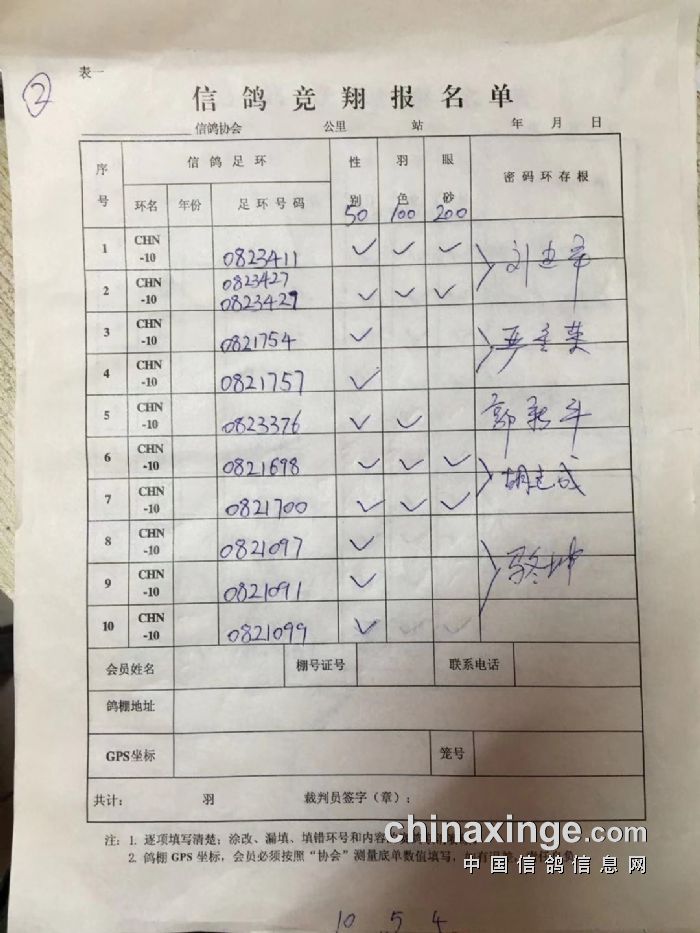 ②
表一
信鸽竞翔报名单
信鸽协会 公里 站 年 月 日
序号 信鸽足环 性别 羽色 眼砂 密码环存根
环名 年份 足环号码 50 100 200
1 CHN-10 0823411 ✓ ✓ ✓
0823427
2 CHN-10 0823429 ✓ ✓ ✓
3 CHN-10 0821754 ✓
4 CHN-10 0821757 ✓
5 CHN-10 0823376 ✓ ✓
6 CHN-10 0821698 ✓ ✓ ✓
7 CHN-10 0821700 ✓ ✓ ✓ 胡志成
8 CHN-10 0821097 ✓
9 CHN-10 0821091 ✓
10 CHN-10 0821099 ✓
会员姓名 棚号证号 联系电话
鸽棚地址
GPS坐标 笼号
共计： 羽 裁判员签字（章）：
注：1. 逐项填写清楚；涂改、漏填、填错环号和内容
2. 鸽棚 GPS 坐标，会员必须按照“协会”测量底单数值填写，
chinaxinge.com
中国信鸽信息网
10 5 4